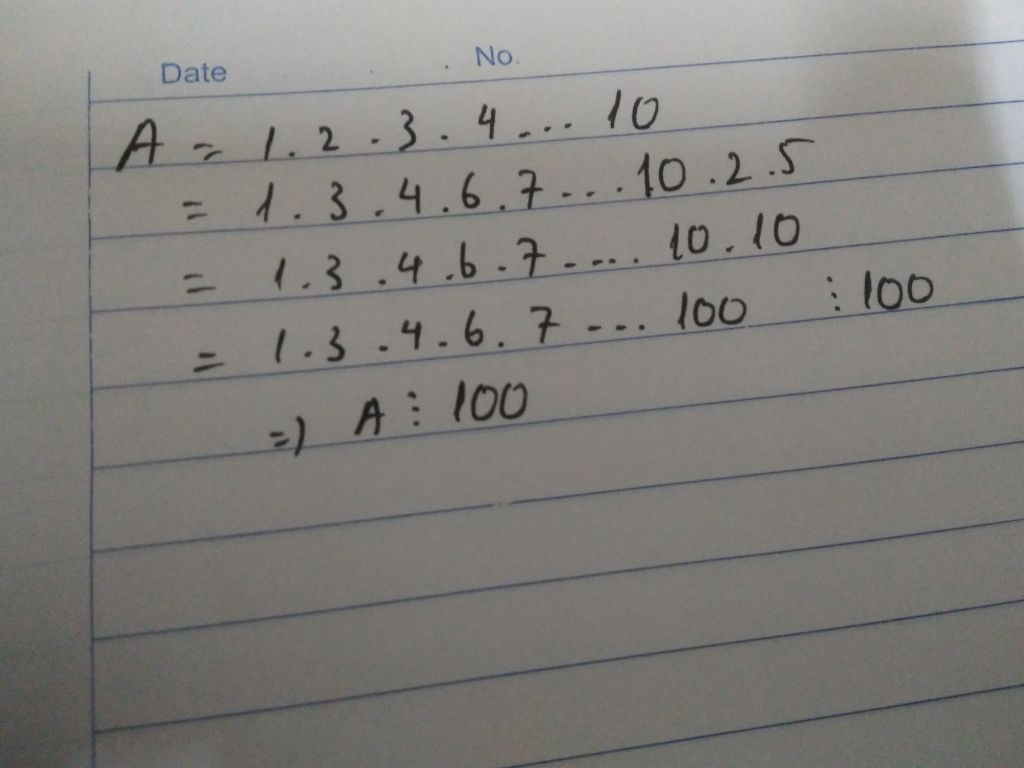 Date No.
A = 1.2.3.4... 10
= 1.3.4.6.7....10.2.5
= 1.3.4.6.7..... 10.10
= 1.3.4.6.7 ... 100 ⋮ 100
=) A ⋮ 100